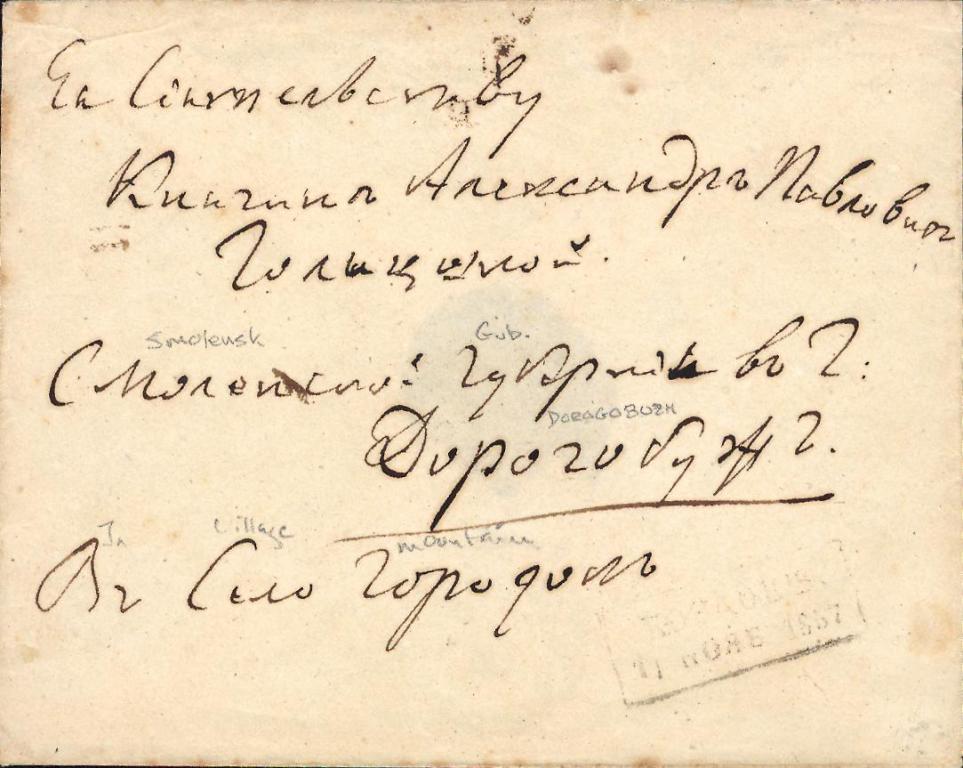 Ея Сіятельству
Княгинѣ Александрѣ Павловнѣ
Голицыной.
Smolensk Gub.
Смоленской Губерніи въ Г:
DOROGOBUZH
Дорогобужъ.
In Village mountain
Въ Село Городокъ
17 НОЯБ 1857